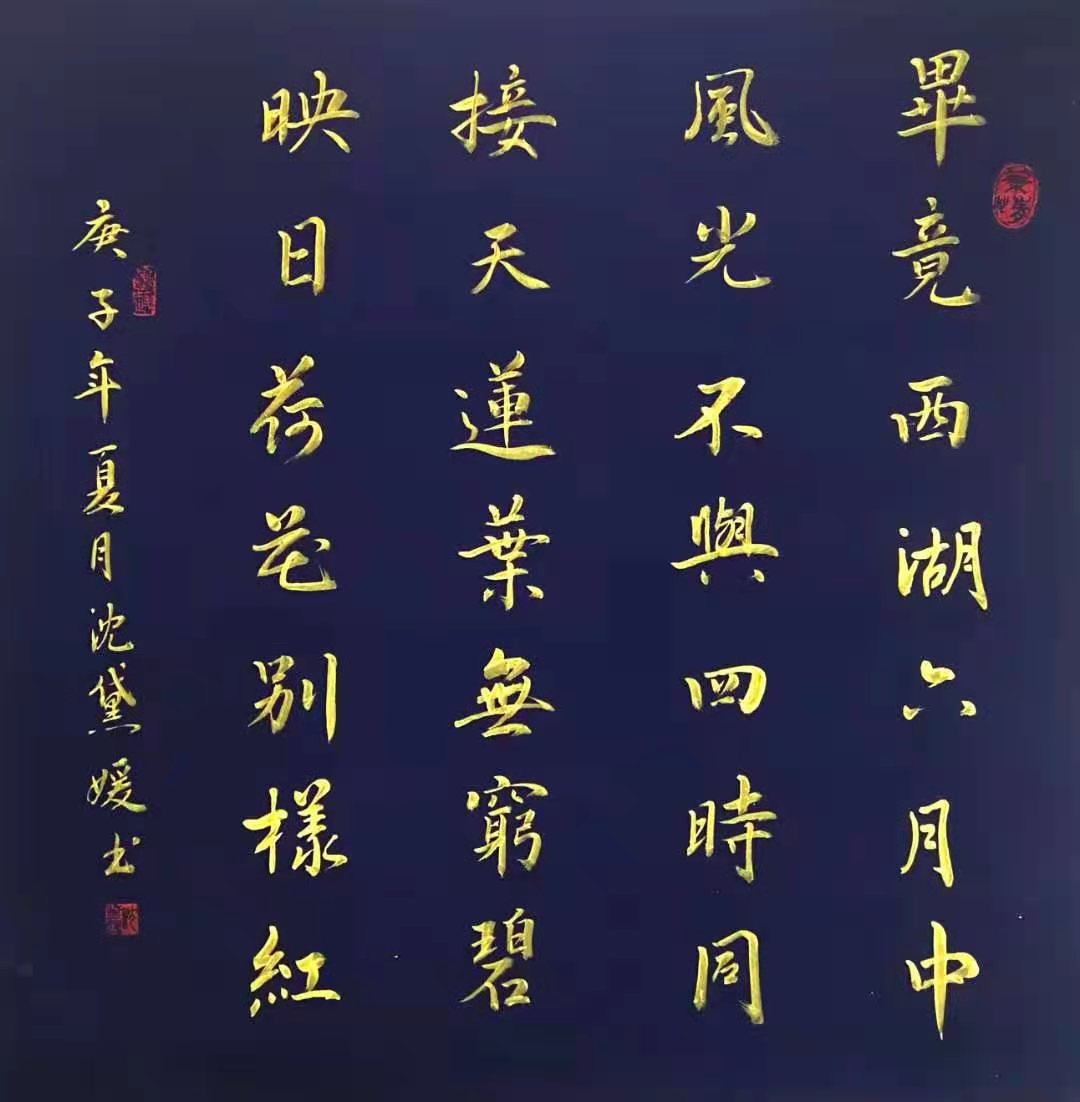 畢竟西湖六月中
風光不與四時同
接天蓮葉無窮碧
映日荷花別樣紅
庚子年夏月沈黛媛书